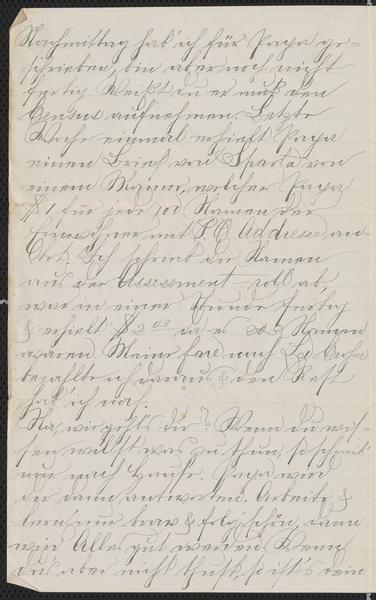 Nachmittag hab' ich für Papa ge=
schrieben, bin aber noch nicht
fertig. Weißt du er muß den
Census aufnehmen. Letzte
Woche einmal erhielt Papa
einen Brief von Sparta von
einem Manne, welcher Papa
$1 für jede 100 Namen der
Einwohner mit P.O. Address an-
bot. Ich schrieb die Namen
aus der Assessment roll ab,
war in einer Stunde fertig
& erhielt $2 03 da es 203 Namen
waren. Meine fare nach La Crosse
bezahlte ich daraus & den Rest
hab' ich noch.
Na, wie gehts dir? Wenn du wis-
sen willst was zu thun, so schreib'
nur nach Hause. Papa wird
dir dann antworten. Arbeite &
lern' nur brav & folg' schön, dann
wird Alles gut werden. Wenn
du's aber nicht thust, so ist's dein